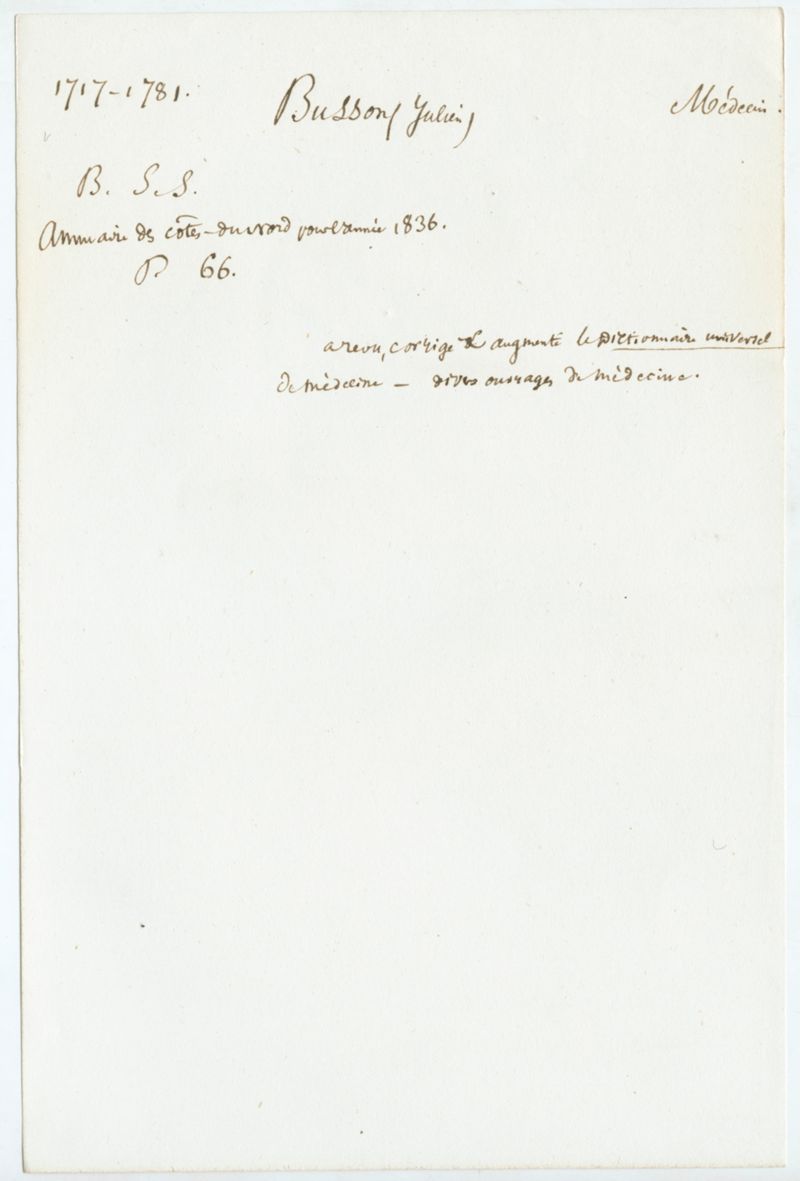 1717-1781. Busson (Julien) Médecin.
B. S. S.
Annuaire des côtes-du-nord pour l'année 1836.
P. 66.
a revu, corrigé & augmenté le Dictionnaire universel
de médecine — divers ouvrages de médecine.